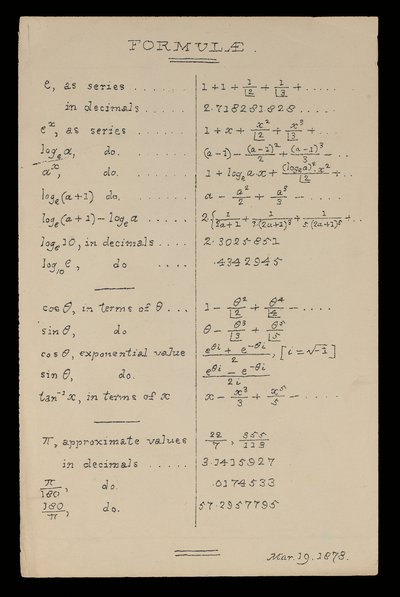 FORMULÆ.
e, as series ...... 1 + 1 + 1/⌊2 + 1/⌊3 + .....
in decimals ..... 2.718281828 .....
eˣ, as series ..... 1 + x + x²/⌊2 + x³/⌊3 + ..
logₑ a, do. ..... (a-1) - (a-1)²/2 + (a-1)³/3 - ...
aˣ, do. ..... 1 + logₑa.x + (logₑa)².x²/⌊2 + ..
logₑ(a+1) do. ..... a - a²/2 + a³/3 - .....
logₑ(a+1) - logₑa ..... 2.{1/2a+1 + 1/3.(2a+1)³ + 1/5.(2a+1)⁵ + ..
logₑ10, in decimals .... 2.3025851
log₁₀e, do .... .4342945
cos θ, in terms of θ ... 1 - θ²/⌊2 + θ⁴/⌊4 - .....
sin θ, do θ - θ³/⌊3 + θ⁵/⌊5
cos θ, exponential value e^θi + e^-θi/2, [i = √-1]
sin θ, do. e^θi - e^-θi/2i
tan⁻¹x, in terms of x x - x³/3 + x⁵/5 - .....
π, approximate values 22/7, 355/113
in decimals ...... 3.1415927
π/180, do. .0174533
180/π, do. 57.2957795
Mar. 19. 1878.